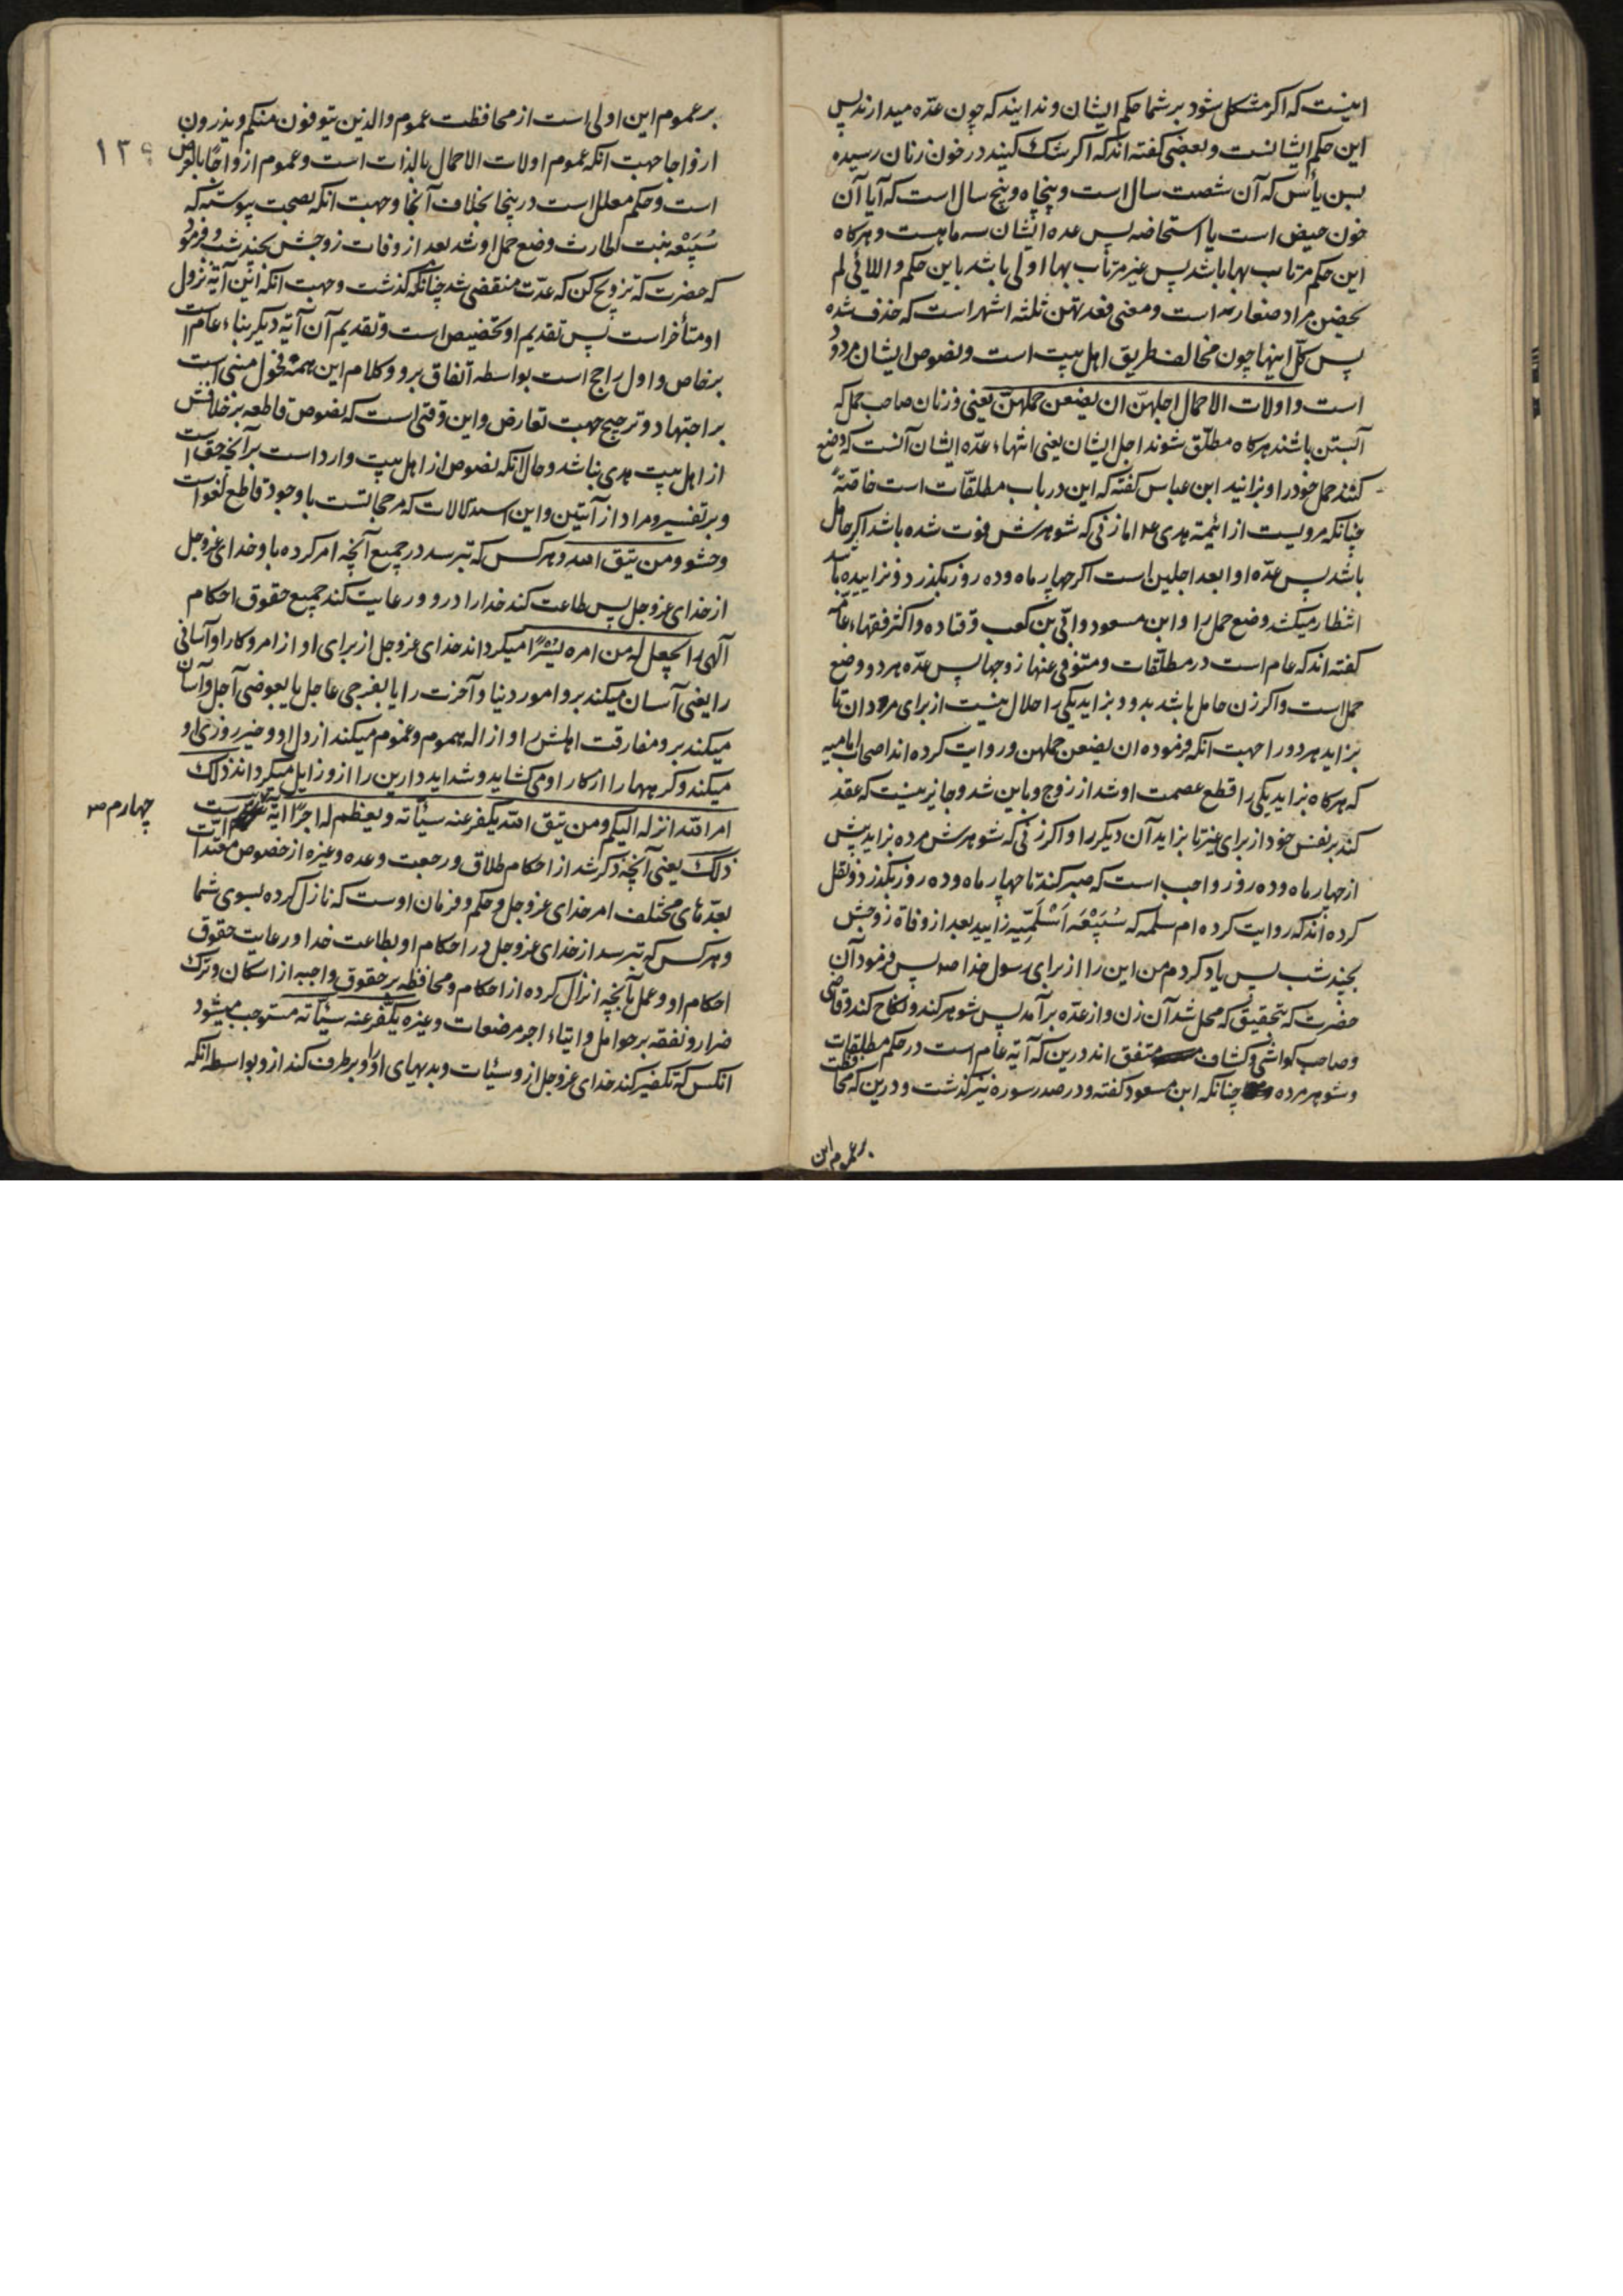 اینست که اکر مشکل شود بر شما حکم ایشان و ندانید که چون عدّه میدارند پس
این حکم ایشانست و بعضی کفته اند که اکر شک کنید در خون زنان رسیده
بسن یأس که آن شصت سال است و پنجاه و پنج سال است که آیا آن
خون حیض است یا استحاضه پس عده ایشان سه ماهست و هرکاه
این حکم مرتاب بها باشد پس غیر مرتاب بها اولی باشد باین حکم و اللائی لم
یحضن مراد صغار است و معنی فعدتهن ثلثه اشهر است که حذف شده
پس کل اینها چون مخالف طریق اهل بیت است و نصوص ایشان مردود
است و اولات الاحمال اجلهنّ ان یضعن حملهنّ یعنی و زنان صاحب حمل که
آبستن باشند هرکاه مطلّق شوند اجل ایشان یعنی انتهاء عدّه ایشان آنست که وضع
کنند حمل خود را و بزانید ابن عباس کفته که این در باب مطلقّات است خاصّةً
چنانکه مرویست از ائیمّه هدی ع اما زنی که شوهرش فوت شده باشد اکر حامل
باشد پس عدّه او ابعد اجلین است اکر چهار ماه و ده روز بکذرد و نزاییده باشد
انتظار میکشد وضع حمل را و ابن مسعود و ابّی بن کعب و قتاده و اکثر فقهاء عامّه
کفته اند که عام است در مطلّقات و متوفی عنها زوجها پس عدّه هر دو وضع
حمل است و اکر زن حامل باشد بدو و بزاید یکی را حلال نیست از برای مردان تا
بزاید هر دو را جهت انکه فرموده ان یضعن حملهن و روایت کرده اند اصحاب امامیه
که هرکاه بزاید یکی را قطع عصمت او شد از زوج و باین شد و جایز نیست که عقد
کند بر نفس خود از برای غیر تا بزاید آن دیکر را و اکر زنی که شوهرش مرده بزاید پیش
از چهار ماه و ده روز واجب است که صبر کند تا چهار ماه و ده روز بکذرد و نقل
کرده اند که روایت کرده ام سلمه که سُبَیْعَه اَسْلَمِیّه زایید بعد از وفاة زوجش
بچند شب پس یاد کردم من این را از برای رسول خدا ص پس فرمود آن
حضرت که بتحقیق که محل شد آن زن و از عدّه برآمد پس شوهر کند و نکاح کند و قاضی
و صاحب کواشی و کشاف متفق اند درین که آیه عام است در حکم مطلقات
و شوهر مرده چنانکه ابن مسعود کفته و در صدر سوره نیز کذشت و درین که محافظت
بر عموم این
بر عموم این اولی است از محافظت عموم والذین یتوفون منکم و یذرون
ازواجا جهت انکه عموم اولات الاحمال بالذات است و عموم ازواجًا بالعرض
است و حکم معلل است در ینجا بخلاف آنجا و جهت انکه بصحت پیوسته که
سُبَیْعَه بنت الحارث وضع حمل او شد بعد از وفات زوجش بچند شب و فرمود
که حضرت که تزویج کن که عدّت منقضی شد چنانکه کذشت و جهت انکه این آیة نزول
او متأخر است پس تقدیم او تخصیص است و تقدیم آن آیه دیکر بناء عام است
بر خاص و اول راجح است بواسطه اتفاق برو و کلام این همه فحول مبنی است
بر اجتهاد و ترجیح جهت تعارض و این وقتی است که نصوص قاطعه بر خلافش
از اهل بیت هدی نباشد و حال آنکه نصوص از اهل بیت وارد است بر آنچه حق است
و بر تفسیر و مراد از آیتین و این استدلالات که مرجحاتست با وجود قاطع لغو است
و حشو و من یتق الله و هر کس که بترسد در جمیع آنچه امر کرده باو خدای عزوجل
از خدای عزوجل پس طاعت کند خدا را درو و رعایت کند جمیع حقوق احکام
آلهی را یجعل له من امره یُسْرًا میکرداند خدای عزوجل از برای او از امر و کار او آسانی
را یعنی آسان میکند برو امور دنیا و آخرت را یا بفرجی عاجل یا بعوضی آجل و آسان
میکند برو مفارقت اهلش را و ازاله هموم و غموم میکند از دل او و خیر روزی او
میکند و کرههارا از کار او می کشاید و شداید دارین را ازو زایل میکرداند ذلک
امر الله انزله الیکم و من یتق الله یکفر عنه سیئاته و یعظم له اجرًا آیة است
چهارم ص
ذلک یعنی آنچه ذکر شد از احکام طلاق و رجعت و عده و غیره از خصوص معتدّات
بعدّهای مختلف امر خدای عزوجل و حکم و فرمان اوست که نازل کرده بسوی شما
و هر کس که بترسد از خدای عزوجل در احکام او بطاعت خدا و رعایت حقوق
احکام او و عمل بآنچه انزال کرده از احکام و محافظه بر حقوق واجبه از اسکان و ترک
ضرار و نفقه بر حوامل و ایتاء اجر مرضعات و غیره یکفر عنه سیئاته مستوجب میشود
انکس که تکفیر کند خدای عزوجل ازو سیئات و بدیهای او را و برطرف کند ازو بواسطه انکه